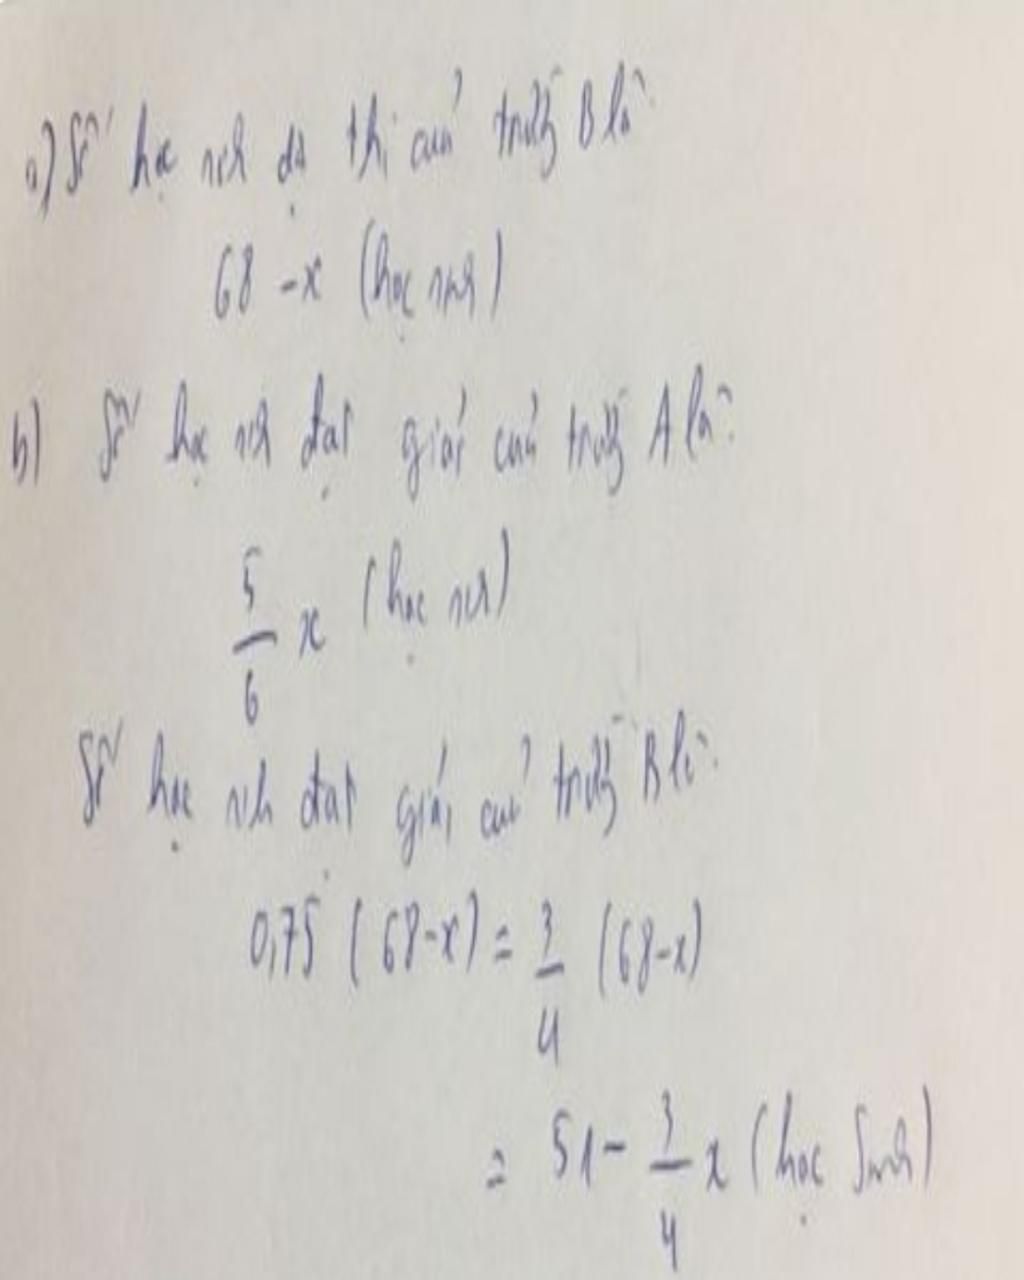 a) Số học sinh dự thi của trường B là:
68 - x (học sinh)
b) Số học sinh đạt giải của trường A là:
5/6 x (học sinh)
Số học sinh đạt giải của trường B là:
0,75 (68-x) = 3/4 (68-x)
= 51 - 3/4 x (học sinh)